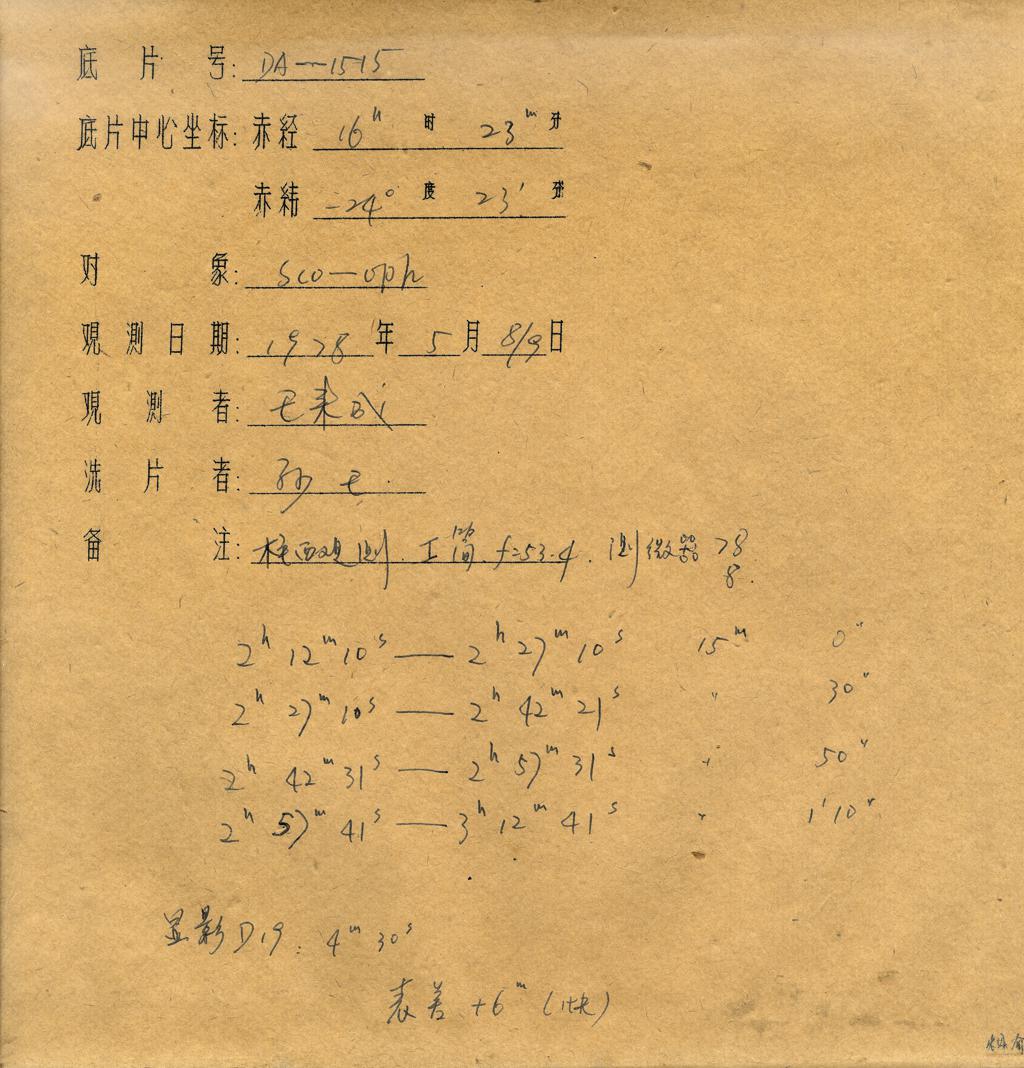 底片号: DA—1515
底片中心坐标: 赤经 16ʰ 时 23ᵐ 分
赤纬 -24° 度 23′ 分
对象: Sco—oph
观测日期: 1978 年 5 月 8/9 日
观测者: 王来成
洗片者: 孙 王
备注: 极西观测. 工筒 f=53.4. 测微器 78
8.
2ʰ 12ᵐ 10ˢ — 2ʰ 27ᵐ 10ˢ 15ᵐ 0″
2ʰ 27ᵐ 10ˢ — 2ʰ 42ᵐ 21ˢ 〃 30″
2ʰ 42ᵐ 31ˢ — 2ʰ 57ᵐ 31ˢ 〃 50″
2ʰ 57ᵐ 41ˢ — 3ʰ 12ᵐ 41ˢ 〃 1′10″
显影 D19: 4ᵐ 30ˢ
表差 +6ᵐ (快)